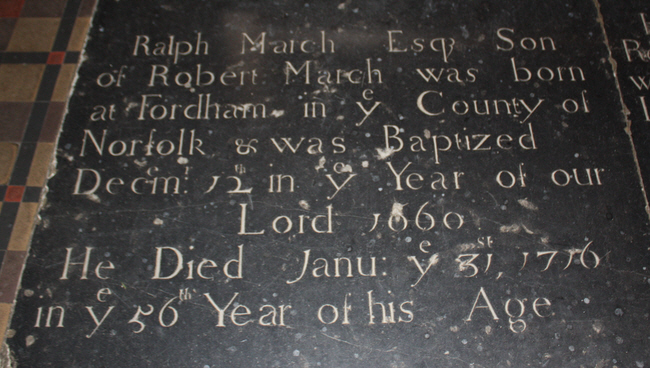 Ralph March Esqr Son
of Robert March was born
at Fordham in ye County of
Norfolk & was Baptized
Decemr. 12th in ye Year of our
Lord 1660
He Died Janu: ye 31st, 1716
in ye 56th Year of his Age